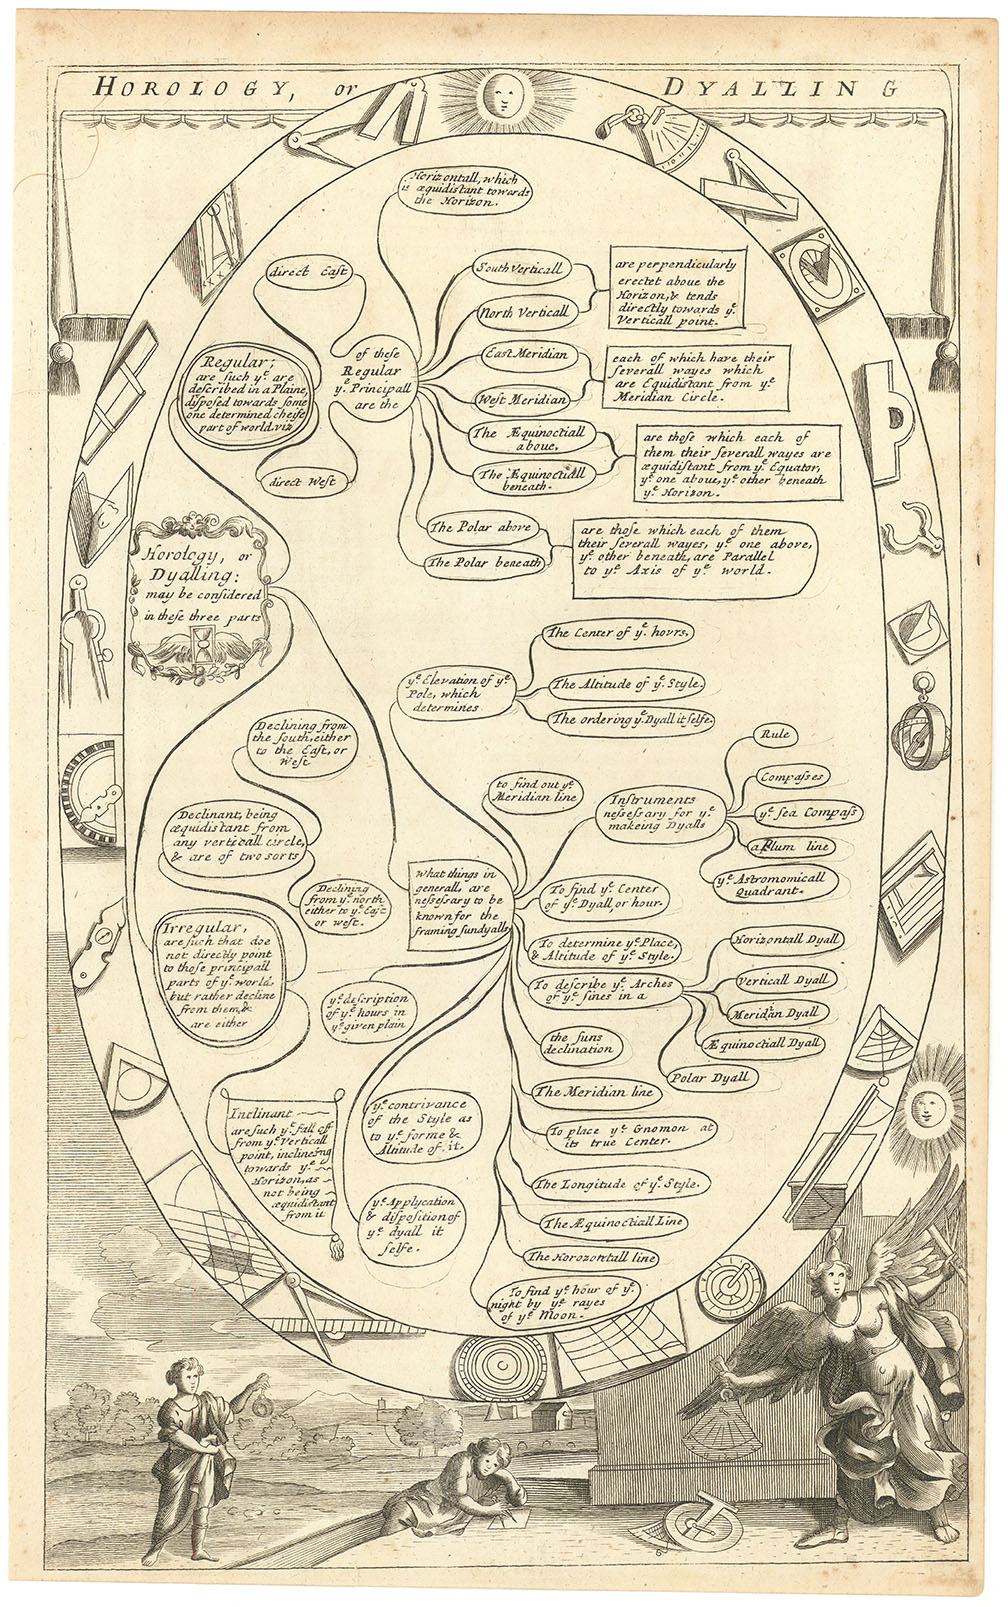 HOROLOGY, or DYALLING
Horizontall, which
is æquidistant towards
the Horizon.
direct East
South Verticall
North Verticall
are perpendicularly
erectet aboue the
Horizon, & tends
directly towards yͤ.
Verticall point.
Regular;
are such yͤ are
described in a Plaine,
disposed towards some
one determined cheife
part of world. viz
of these
Regular
yͤ. Principall
are the
East Meridian
West Meridian
each of which have their
severall wayes which
are Equidistant from yͤ
Meridian Circle.
The Æquinoctiall
aboue.
The Æquinoctiall
beneath.
are those which each of
them their severall wayes are
æquidistant from yͤ Equator,
yͤ one aboue, yͤ other beneath
yͤ Horizon.
direct West
The Polar above
The Polar beneath
are those which each of them
their severall wayes, yͤ one above,
yͤ other beneath, are Parallel
to yͤ Axis of yͤ world.
Horology, or
Dyalling:
may be considered
in these three parts
The Center of yͤ hours.
yͤ Elevation of yͤ
Pole, which
determines
The Altitude of yͤ Style.
The ordering yͤ Dyall it selfe.
Declining from
the South, either
to the East, or
West
Rule
Compasses
yͤ sea Compass
a Plum line
yͤ Astromomicall
Quadrant.
to find out yͤ
Meridian line
Instruments
nessessary for yͤ
makeing Dyalls
Declinant, being
æquidistant from
any verticall circle,
& are of two sorts
Declining
from yͤ north
either to yͤ East
or west.
what things in
generall, are
nessessary to be
known for the
framing sundyalls
To find yͤ Center
of yͤ Dyall, or hour.
To determine yͤ Place,
& Altitude of yͤ Style.
Irregular,
are such that doe
not directly point
to those principall
parts of yͤ world,
but rather decline
from them, &
are either
yͤ description
of yͤ hours in
yͤ given plain
To describe yͤ Arches
of yͤ sines in a
Horizontall Dyall
Verticall Dyall
Meridan Dyall
Æquinoctiall Dyall
Polar Dyall
the suns
declination
The Meridian line
Inclinant
are such yͤ fall off
from yͤ Verticall
point, inclinesng
towards yͤ
Horizon, as
not being
æquidistant
from it
yͤ contrivance
of the Style as
to yͤ forme &
Altitude of it.
To place yͤ Gnomon at
its true Center.
The Longitude of yͤ Style.
yͤ Applycation
& disposition of
yͤ dyall it
selfe.
The Æquinoctiall Line
The Horozontall line
To find yͤ hour of yͤ
night by yͤ rayes
of yͤ Moon.